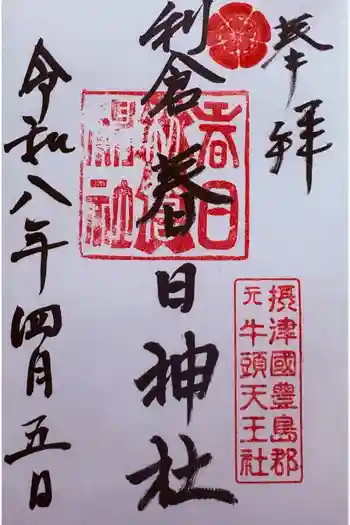 奉拝
利倉春日神社
令和八年四月五日
春日
利倉
神社
摂津國豊島郡
元牛頭天王社